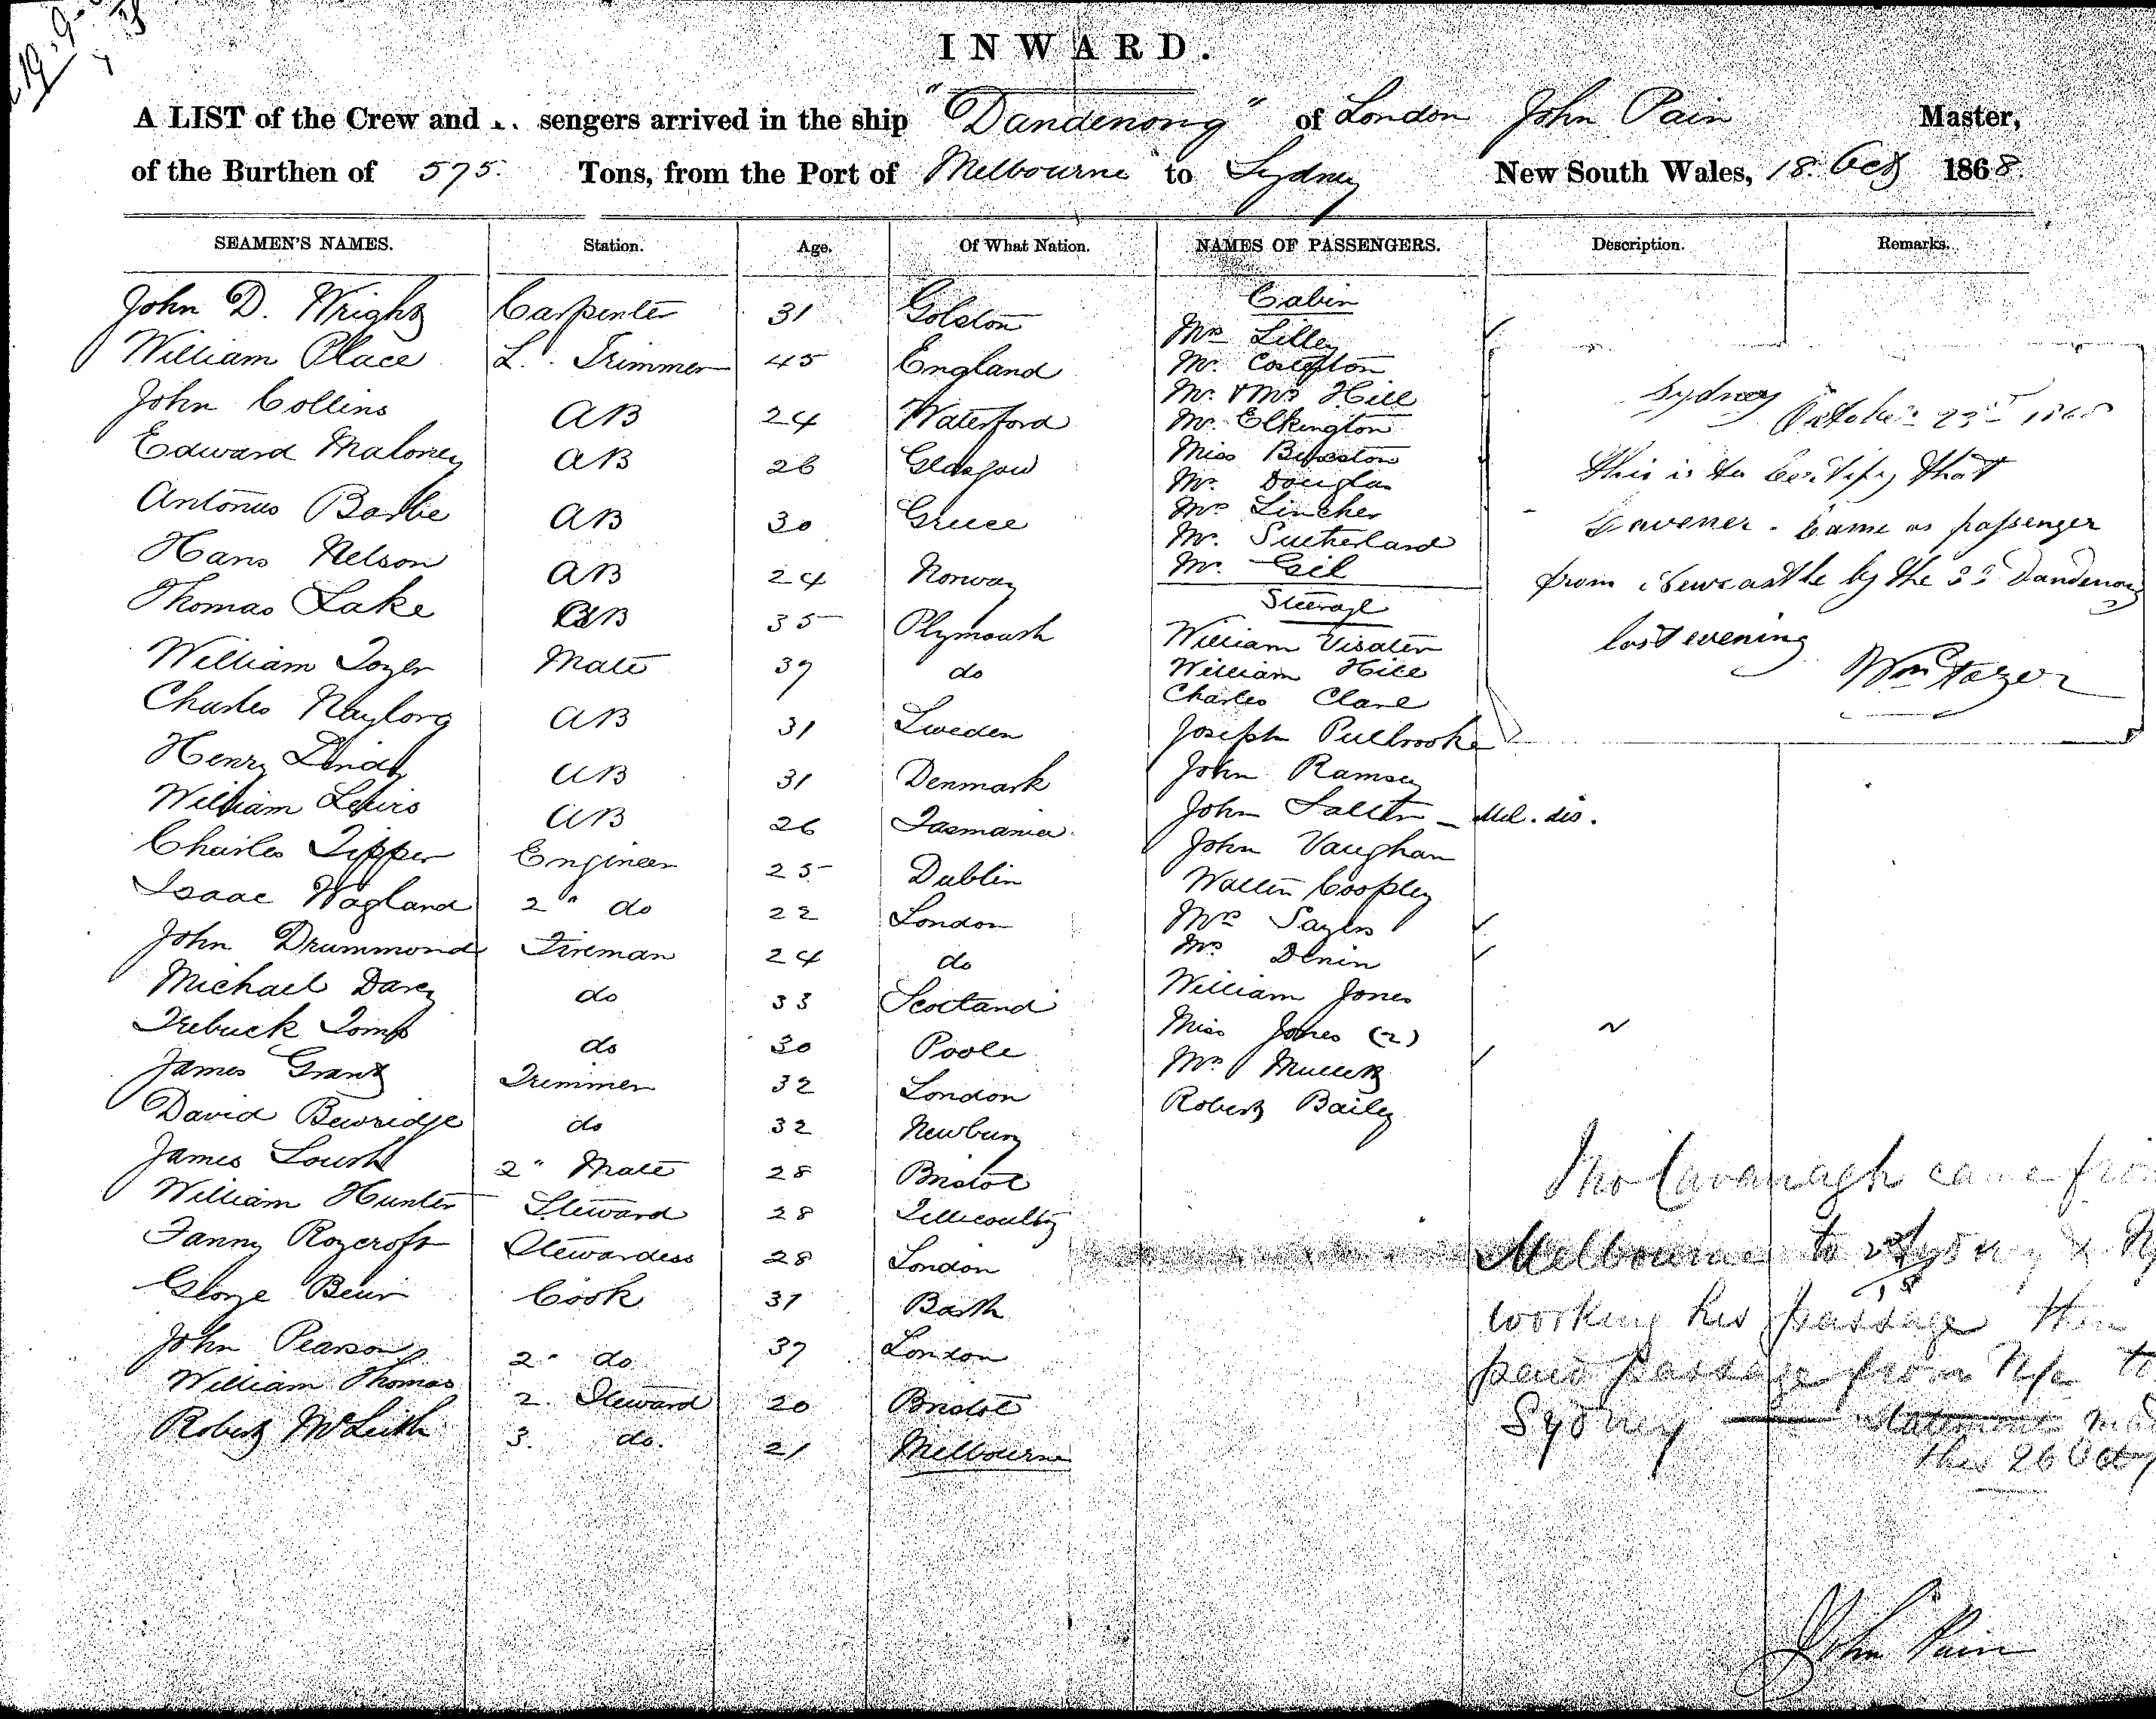 INWARD.
A LIST of the Crew and sengers arrived in the ship "Dandenong" of London John Pain Master,
of the Burthen of 575. Tons, from the Port of Melbourne to Sydney New South Wales, 18. Oct 1868.
SEAMEN'S NAMES. Station. Age. Of What Nation. NAMES OF PASSENGERS. Description. Remarks.
John D. Wright Carpenter 31 Golston
William Place L. Trimmer 45 England
John Collins AB 24 Waterford
Edward Maloney AB 26 Glasgow
Antonus Barbe AB 30 Greece
Hans Nelson AB 24 Norway
Thomas Lake AB 35 Plymouth
William Tozer Mate 37 do
Charles Naylorg AB 31 Sweden
Henry AB 31 Denmark
William Lewis AB 26 Tasmania.
Charles Tipper Engineer 25 Dublin
Isaac Wagland 2" do 22 London
John Drummond Fireman 24 do
Michael Darcy do 33 Scotland
Trebuck Tomp do 30 Poole
James Grant Trimmer 32 London
David Bewridge do 32 Newbury
James 2" Mate 28 Bristol
William Hunter Steward 28
Fanny Roycroft Stewardess 28 London
George Cook 31 Bath
John Pearson 2" do 37 London
William Thomas 2. Steward 20 Bristol
Robert McLeith 3. do. 21 Melbourne
Cabin
Mrs Lilley
Mr.
Mr. & Mrs Hill
Mr. Elkington
Miss
Mr. Douglas
Mrs Lincher
Mr. Sutherland
Mr. Gil
Steerage
William Visater
William Hill
Charles Clare
Joseph Pullbrooke
John Ramsey
John Salter - Mel. dis.
John Vaughan
Walter Coopley
Mrs Sayers
Mrs Denin
William Jones
Miss Jones (2)
Mrs Mullett
Robert Bailey
Sydney
October 23rd 1868
This is to Certify that
Gavener. Came as passenger
from Newcastle by the SS Dandenong
last evening
Wm Tozer
Cavanagh came from
Melbourne to Sydney &
working his passage then
paid passage from N/c to
Sydney — Statement
this 26 Oct
John Pain